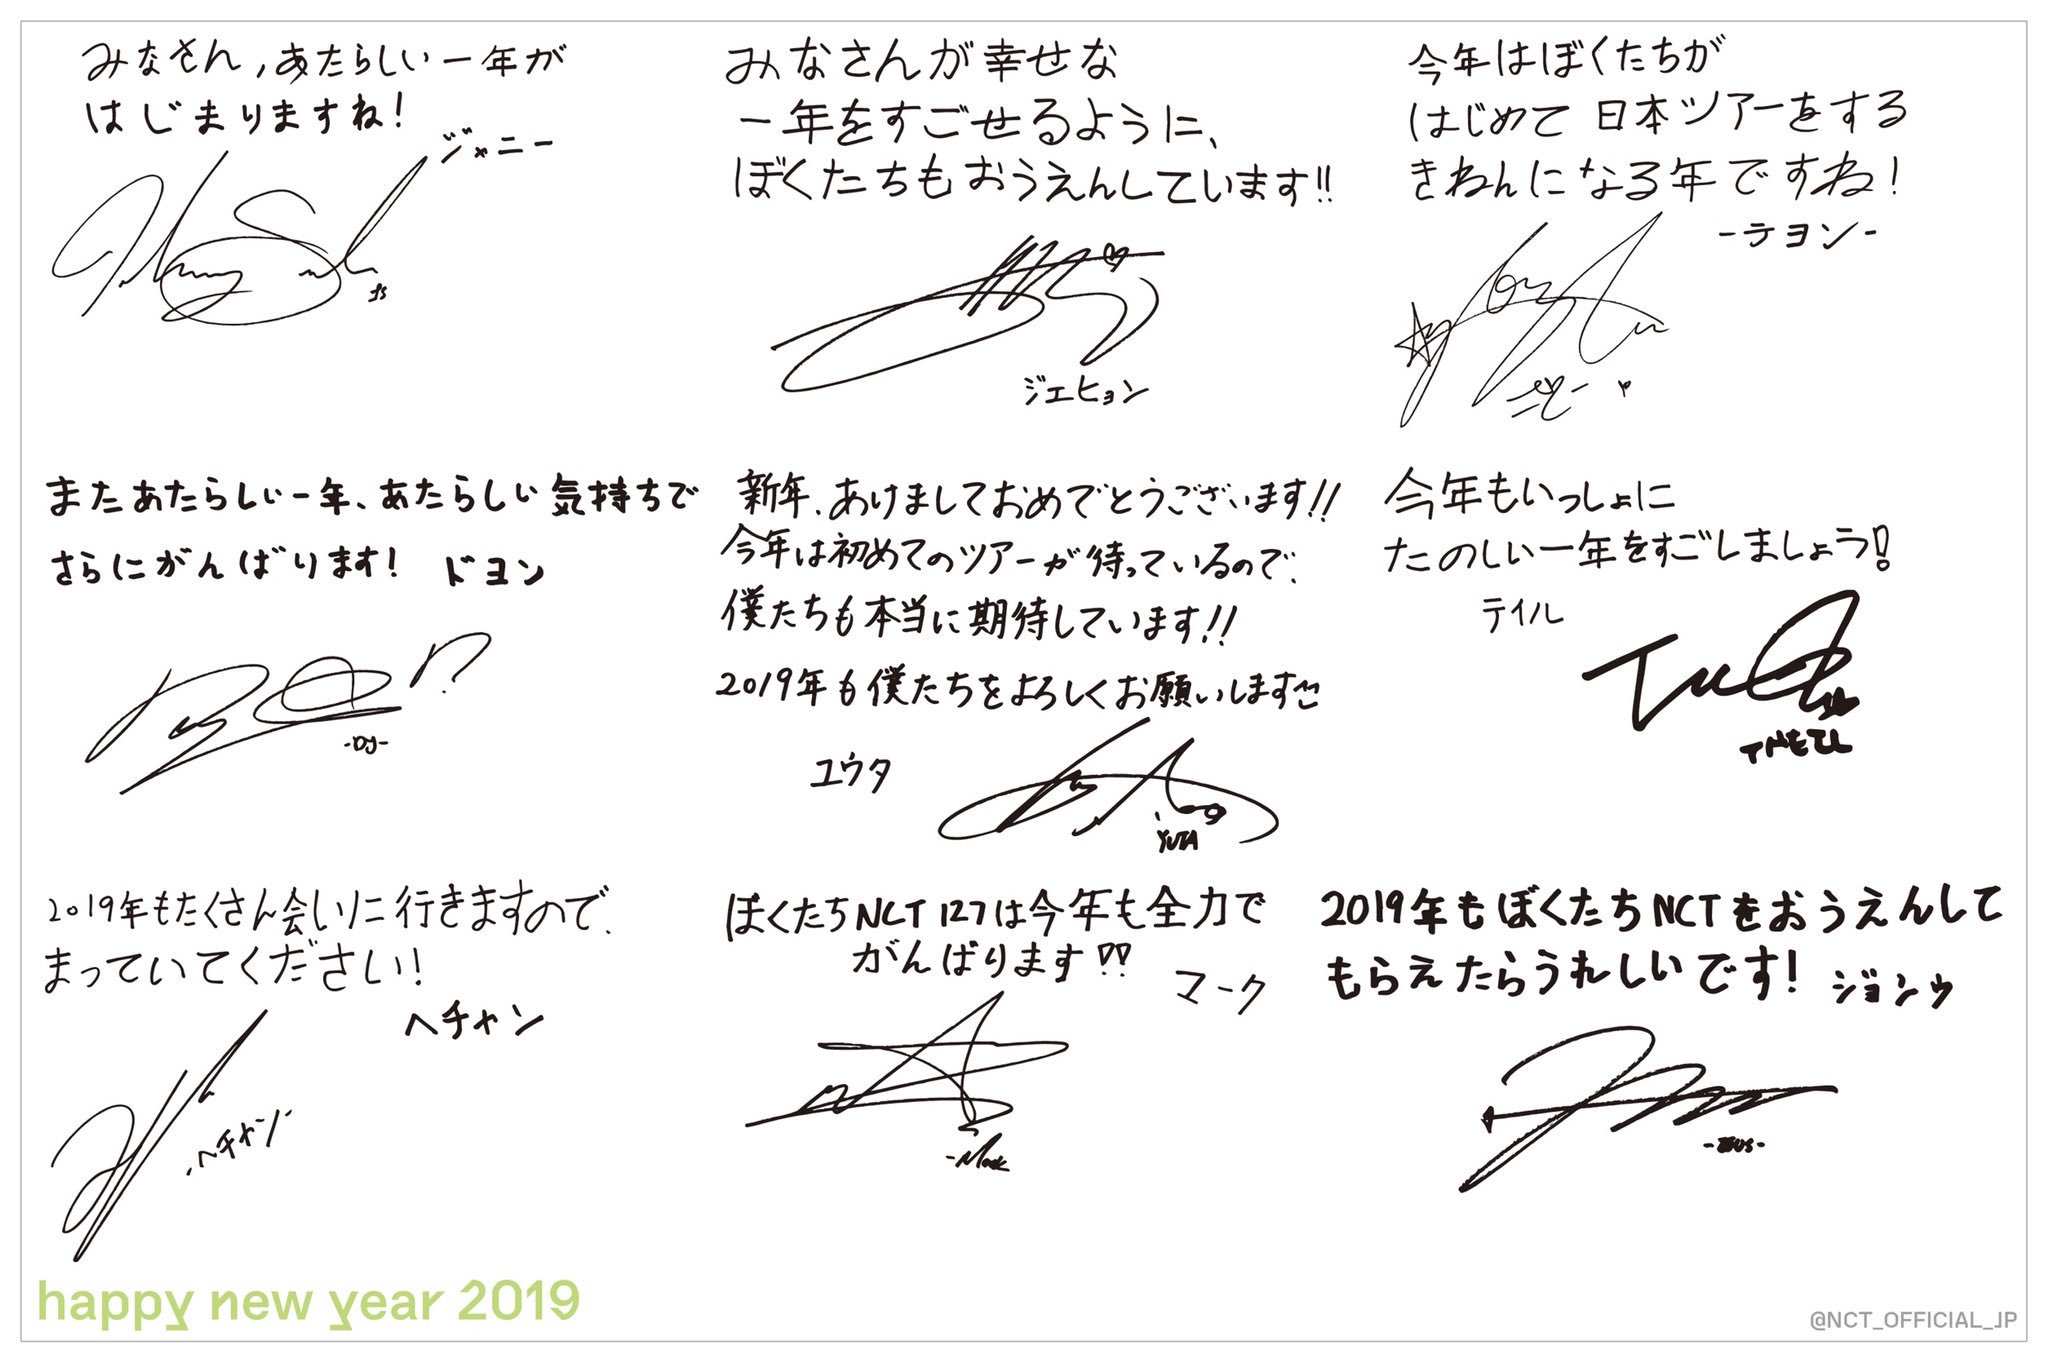 みなさん,あたらしい一年が
はじまりますね!
ジャニー
みなさんが幸せな
一年をすごせるように、
ぼくたちもおうえんしています!!
ジェヒョン
今年はぼくたちが
はじめて日本ツアーをする
きねんになる年ですね!
-テヨン-
またあたらしい一年、あたらしい気持ちで
さらにがんばります! ドヨン
-DY-
新年、あけましておめでとうございます!!
今年は初めてのツアーが待っているので、
僕たちも本当に期待しています!!
2019年も僕たちをよろしくお願いします
ユウタ
YUTA
今年もいっしょに
たのしい一年をすごしましょう!
テイル
2019年もたくさん会いに行きますので、
まっていてください!
ヘチャン
-ヘチャン-
ぼくたちNCT127は今年も全力で
がんばります!!
マーク
-Mark
2019年もぼくたちNCTをおうえんして
もらえたらうれしいです! ジョンウ
happy new year 2019
@NCT_OFFICIAL_JP